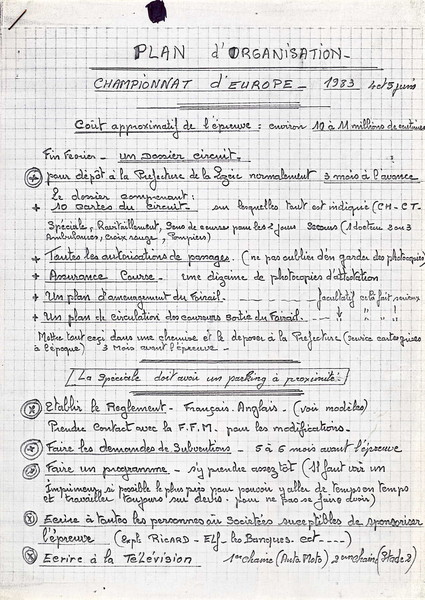 PLAN d'ORGANISATION_
CHAMPIONNAT d'EUROPE_ 1983 4 et 5 juin
Coût approximatif de l'épreuve : environ 10 à 11 millions de centimes
Fin Fevrier _ un Dossier circuit.
pour dépôt à la Prefecture de la Lozère normalement 3 mois à l'avance
Le dossier comprenant:
+ 10 cartes du circuit _ sur lesquelles tout est indiqué (CH_CT_
Spéciale, Ravitaillement, Sens de course pour les 2 jours Secours (1 docteur 2 ou 3
Ambulances, croix rouge, Pompiers)
+ Toutes les autorisations de passages. (ne pas oublier d'en garder des photocopies)
+ Assurance Course _ une dizaine de photocopies d'attestation
+ Un plan d'amenagement du Foirail. _ _ _ _ facultatif cela fait serieux
+ Un plan de circulation des coureurs sortie du Foirail. _ _ " " "
Mettre tout ceci dans une chemise et le deposer à la Prefecture (service cartes grises
à l'époque) 3 mois avant l'epreuve _
La Spéciale doit avoir un parking à proximité!
Etablir le Reglement _ Français. Anglais _ (voir modèles)
Prendre Contact avec la F.F.M. pour les modifications.
Faire les demandes de Subventions _ 5 à 6 mois avant l'épreuve
Faire un programme _ s'y prendre assez tôt (Il faut voir un
Imprimeur si possible le plus près pour pouvoir y aller de temps en temps
et travailler toujours sur devis. pour ne pas se faire avoir)
Ecrire à toutes les personnes ou Sociétées suceptibles de sponsoriser
l'épreuve (expl. RICARD _ ELF_ les Banques. ect----)
Ecrire à la Télévision 1ère chaine (Auto Moto) 2ème chaine (Stade 2)